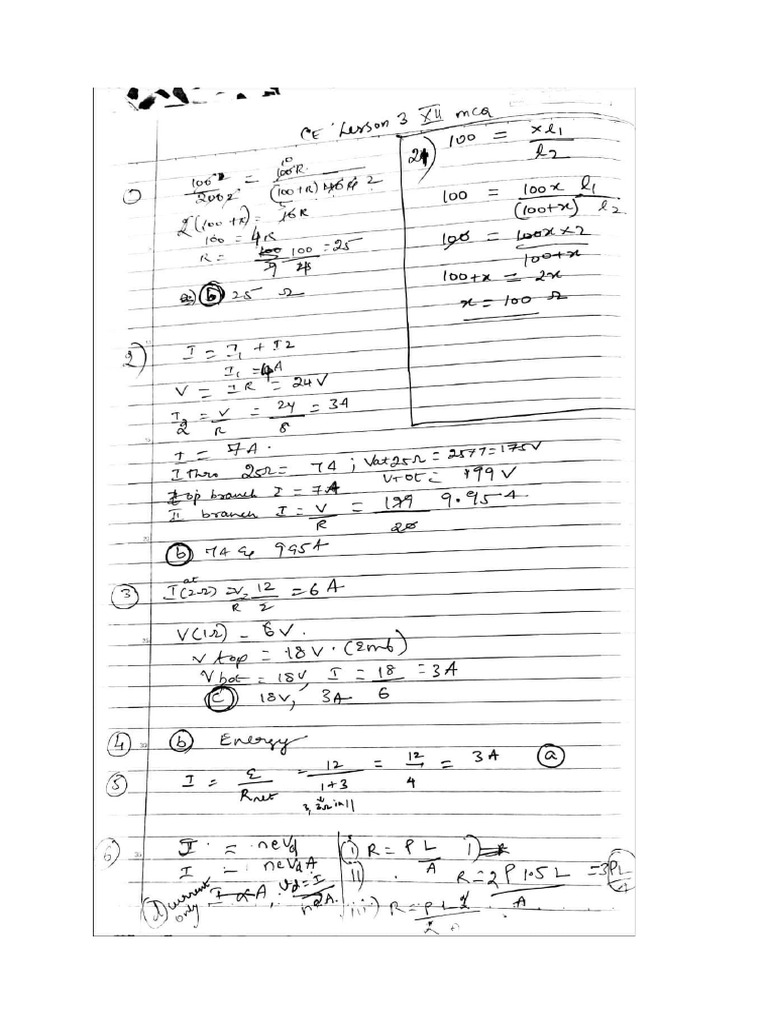 CE Lesson 3 XII mcq
1) 100 2 / 200 2 = 100R / (100+R) 2
2(100+R) = 10R
100 = 4R
R = 100 / 4 = 25
b 25 Ω
21) 100 = x l1 / l2
100 = 100x l1 / (100+x) l2
100 = 100x × 2 / 100+x
100+x = 2x
x = 100 Ω
2) I = I1 + I2
I1 = 4A
V = IR = 24V
I2 = V/R = 24/8 = 3A
I = 7A.
I thro 25Ω = 7A ; V at 25Ω = 25×7 = 175V
Vtot = 199V
top branch I = 7A
II branch I = V/R = 199/20 9.95A
b 7A & 9.95A
3 I at (2Ω) = V/R 12/2 = 6A
V(1Ω) = 6V.
V top = 18V. (Emf)
V bot = 18V, I = 18/6 = 3A
C 18V, 3A
4 b Energy
5 I = ε/Rnet = 12/1+3 = 12/4 = 3A a
3, 3Ω in ||
6 I = neVd
I = neVdA
d current only I ∝ A, Vd = I/neA.
i) R = ρL/A
ii) R = 2ρ1.5L/A = 3ρL
iii) R = ρL2